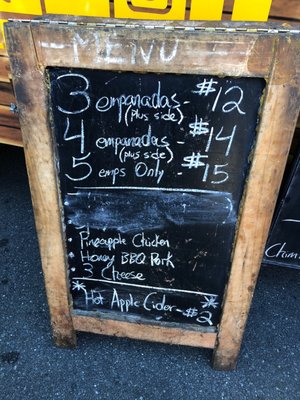 MENU
3 empanadas - $12
(plus side)
4 empanadas - $14
(plus side)
5 emps Only - $15
• Pineapple Chicken
• Honey BBQ Pork
• 3 Cheese
* Hot Apple Cider - $2 *